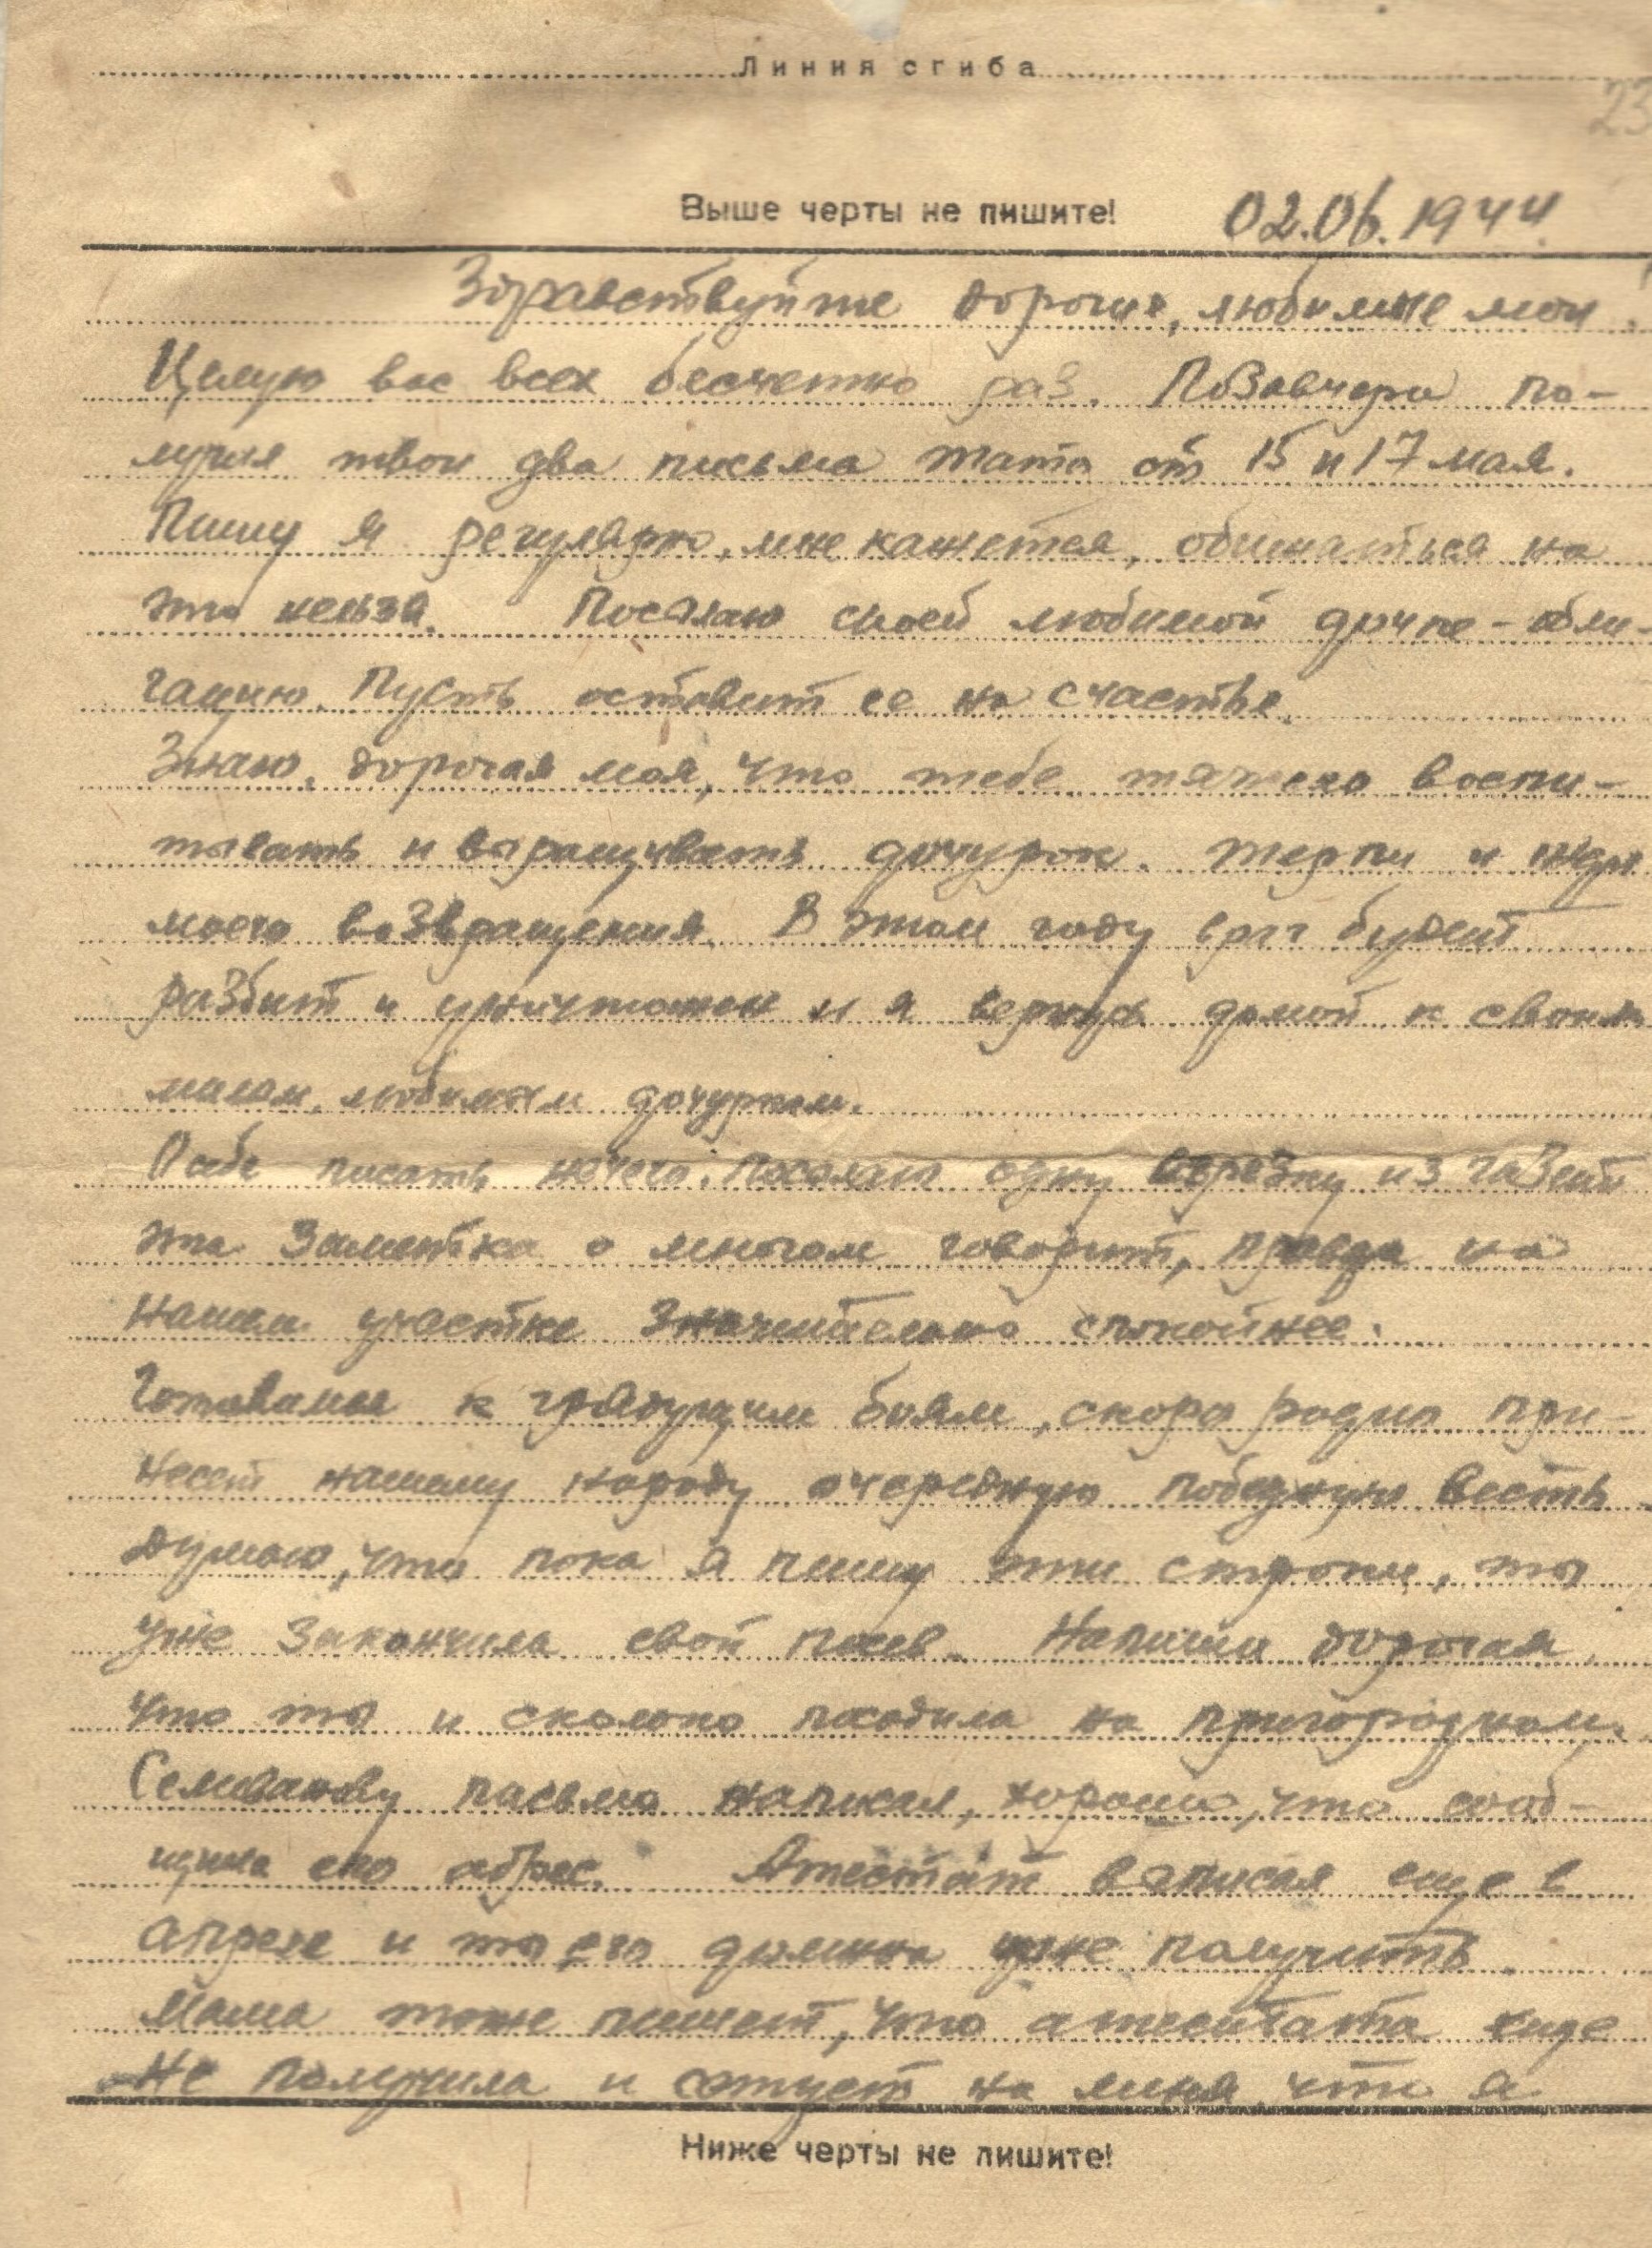 Линия сгиба
23
Выше черты не пишите!
02.06.1944
Здравствуйте дорогие, любимые мои.
Целую вас всех бесчетно раз. Позавчера по-
лучил твои два письма тата от 15 и 17 мая.
Пишу я регулярно, мне кажется, обижаться на
это нельзя. Посылаю своей любимой дочке - обли-
гацию. Пусть оставит ее на счастье.
Знаю, дорогая моя, что тебе тяжело воспи-
тывать и выращивать дочурок. Терпи и жди
моего возвращения. В этом году враг будет
разбит и уничтожен и я вернусь домой к своим
милым, любимым дочуркам.
писать нечего. Посылаю одну вырезку из газет
эта заметка о многом говорит, правда на
нашем участке значительно спокойнее.
Готовимся к грядущим боям, скоро радио при-
несет нашему народу очередную победную весть.
Думаю, что пока я пишу эти строки, ты
уже закончила свой посев. Напиши дорогая,
что ты и сколько посадила на пригородном.
Селиванову письмо написал, хорошо, что сооб-
щила его адрес. Атестат выписал еще в
апреле и ты его должна уже получить.
Мама тоже пишет, что атестата еще
не получила и сетует на меня, что я
Ниже черты не пишите!